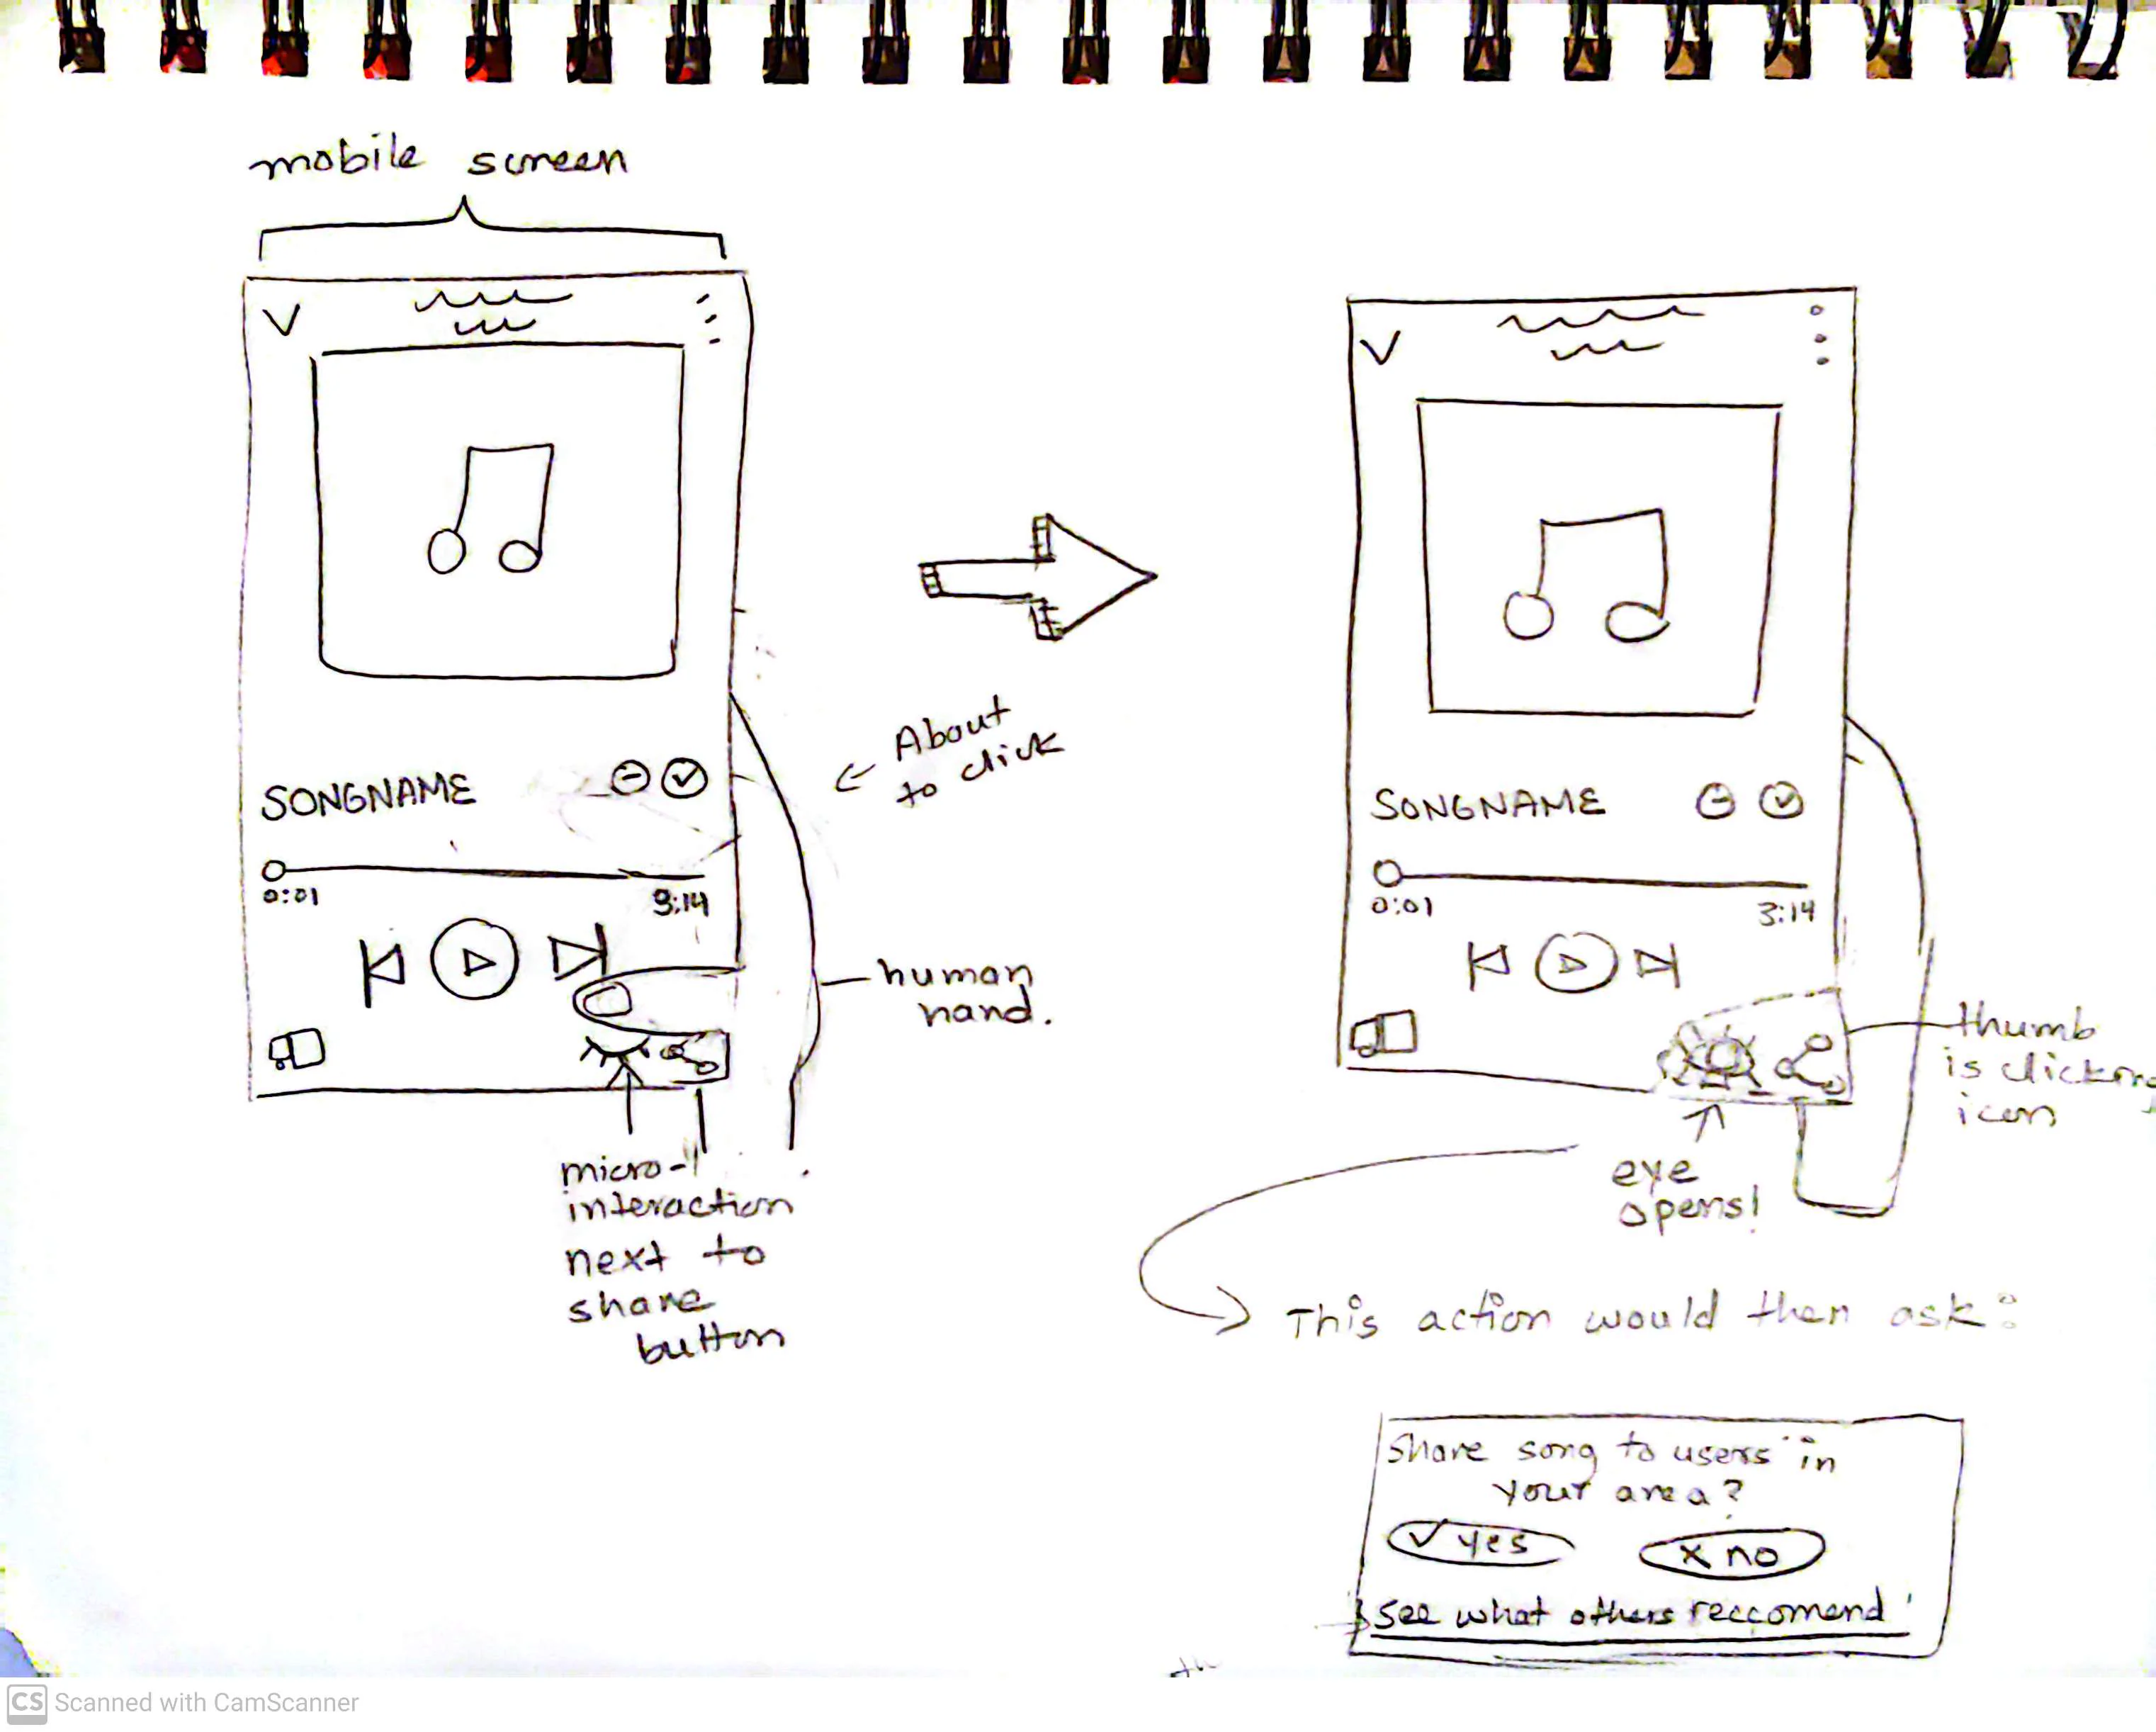 mobile screen
SONGNAME
0:01
3:14
About
to click
human
hand.
micro-
interaction
next to
share
button
SONGNAME
0:01
3:14
thumb
is clicking
icon
eye
opens!
This action would then ask:
Share song to users in
your area?
✓ yes
x no
See what others reccomend
CS Scanned with CamScanner